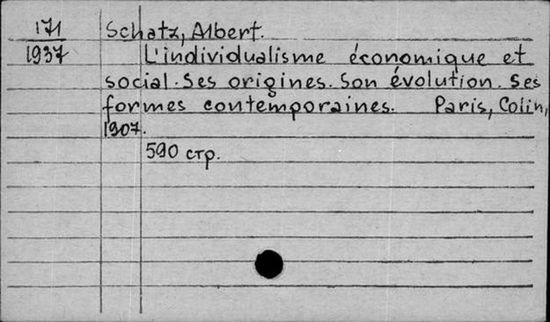 171 Schatz, Albert.
1937 L'individualisme économique et
social. Ses origines. Son évolution. Ses
formes contemporaines. Paris, Colin,
1907.
590 стр.